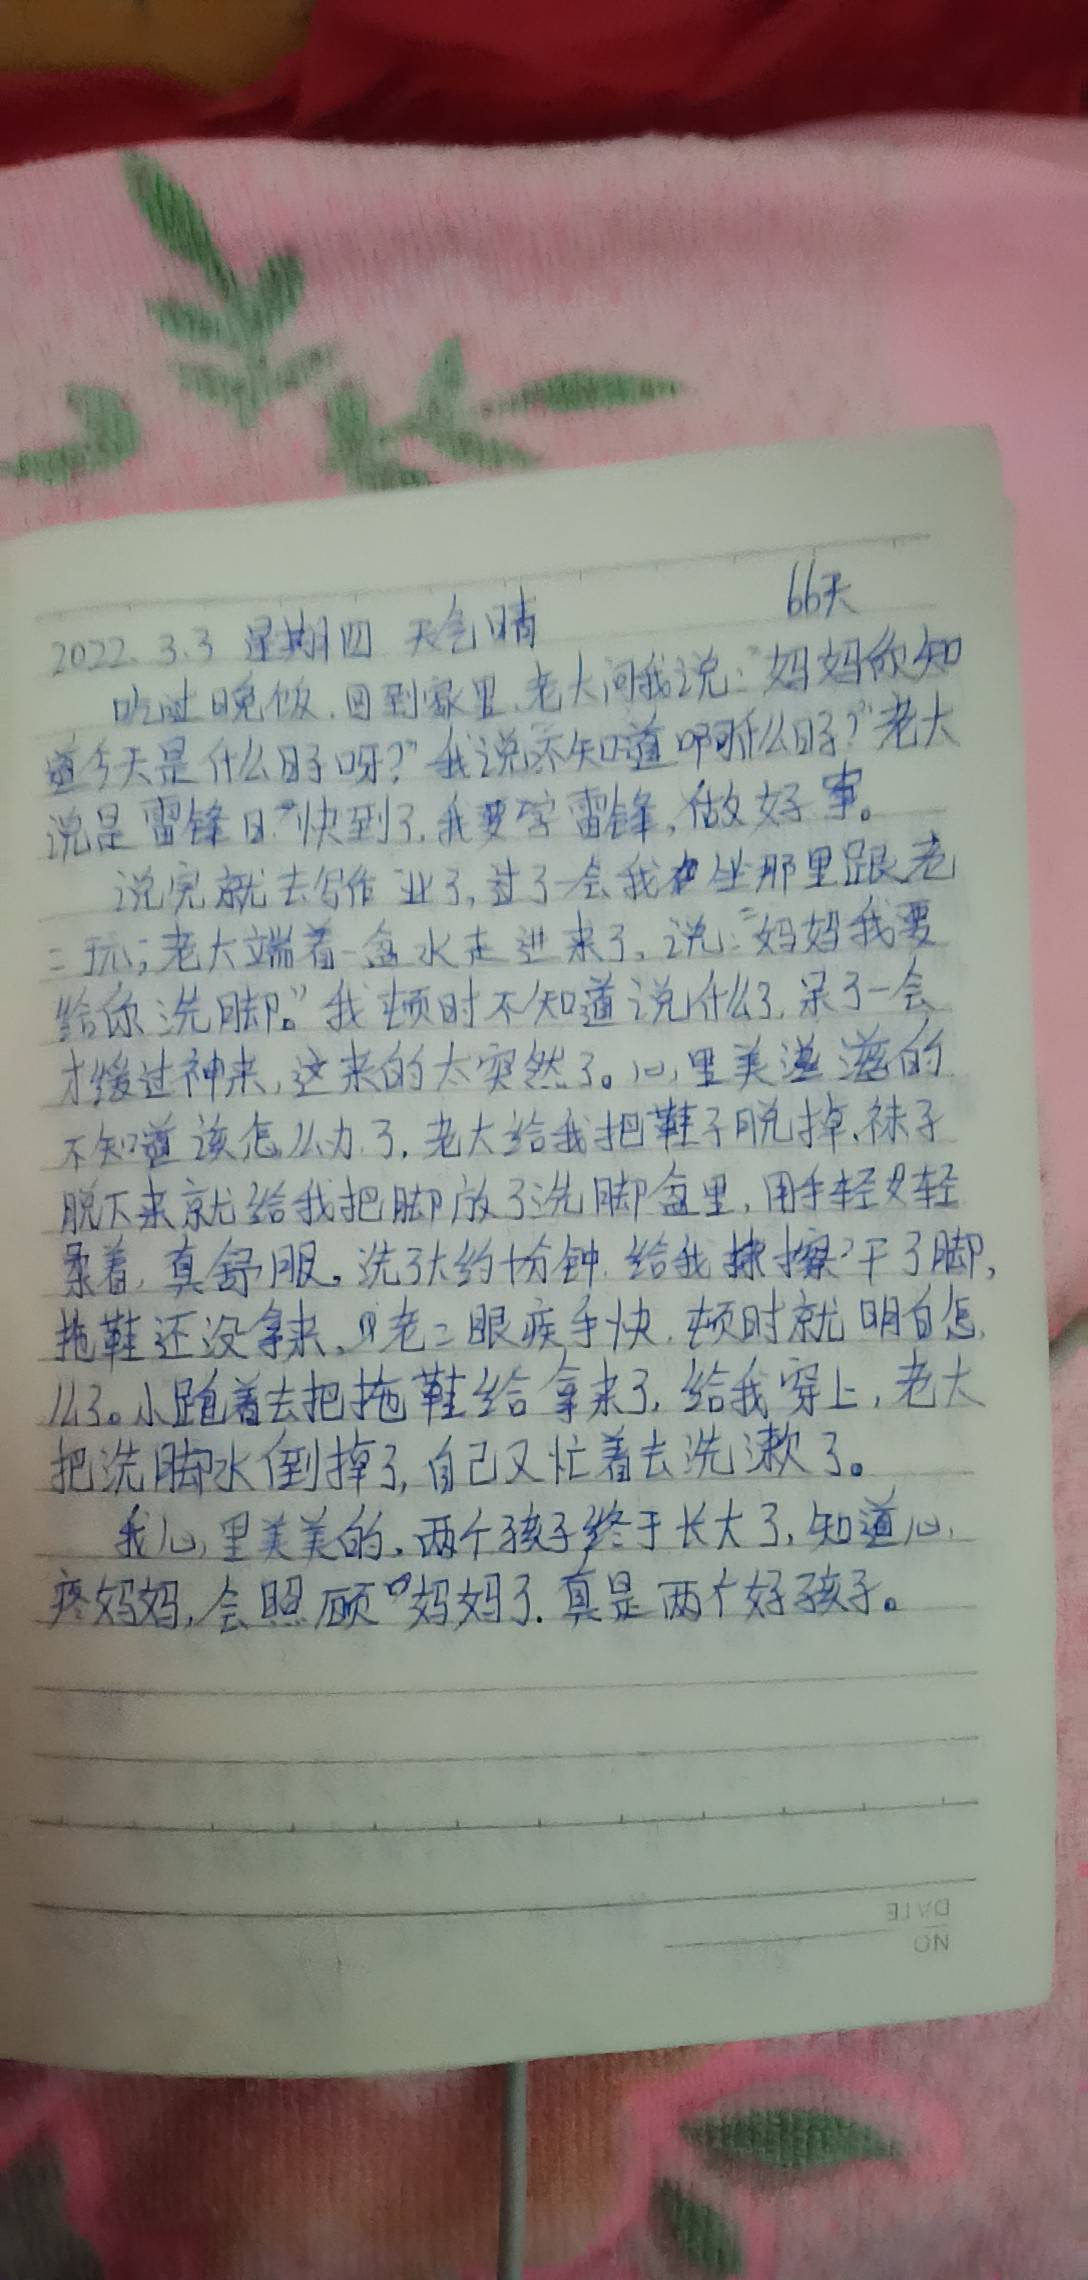 66天
2022.3.3 星期四 天气晴
吃过晚饭.回到家里.老大问我说:"妈妈你知
道今天是什么日子呀?"我说不知道啊什么日子?"老大
说是雷锋日"快到了.我要学雷锋,做好事。
说完就去写作业了,过了一会我坐那里跟老
二玩;老大端着一盆水走进来了。说:"妈妈我要
给你洗脚。"我顿时不知道说什么了.呆了一会
才缓过神来,这来的太突然了。心里美滋滋的
不知道该怎么办了.老大给我把鞋子脱掉、袜子
脱下来就给我把脚放了洗脚盆里,用手轻轻
柔着,真舒服。洗了大约十分钟.给我擦干了脚,
拖鞋还没拿来。老二眼疾手快.顿时就明白怎
么了。小跑着去把拖鞋给拿来了,给我穿上,老大
把洗脚水倒掉了,自己又忙着去洗漱了。
我心里美美的。两个孩子终于长大了,知道心
疼妈妈,会照顾妈妈了.真是两个好孩子。
DATE
NO